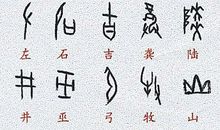 左 石 吉 龚 陆
井 巫 弓 牧 山